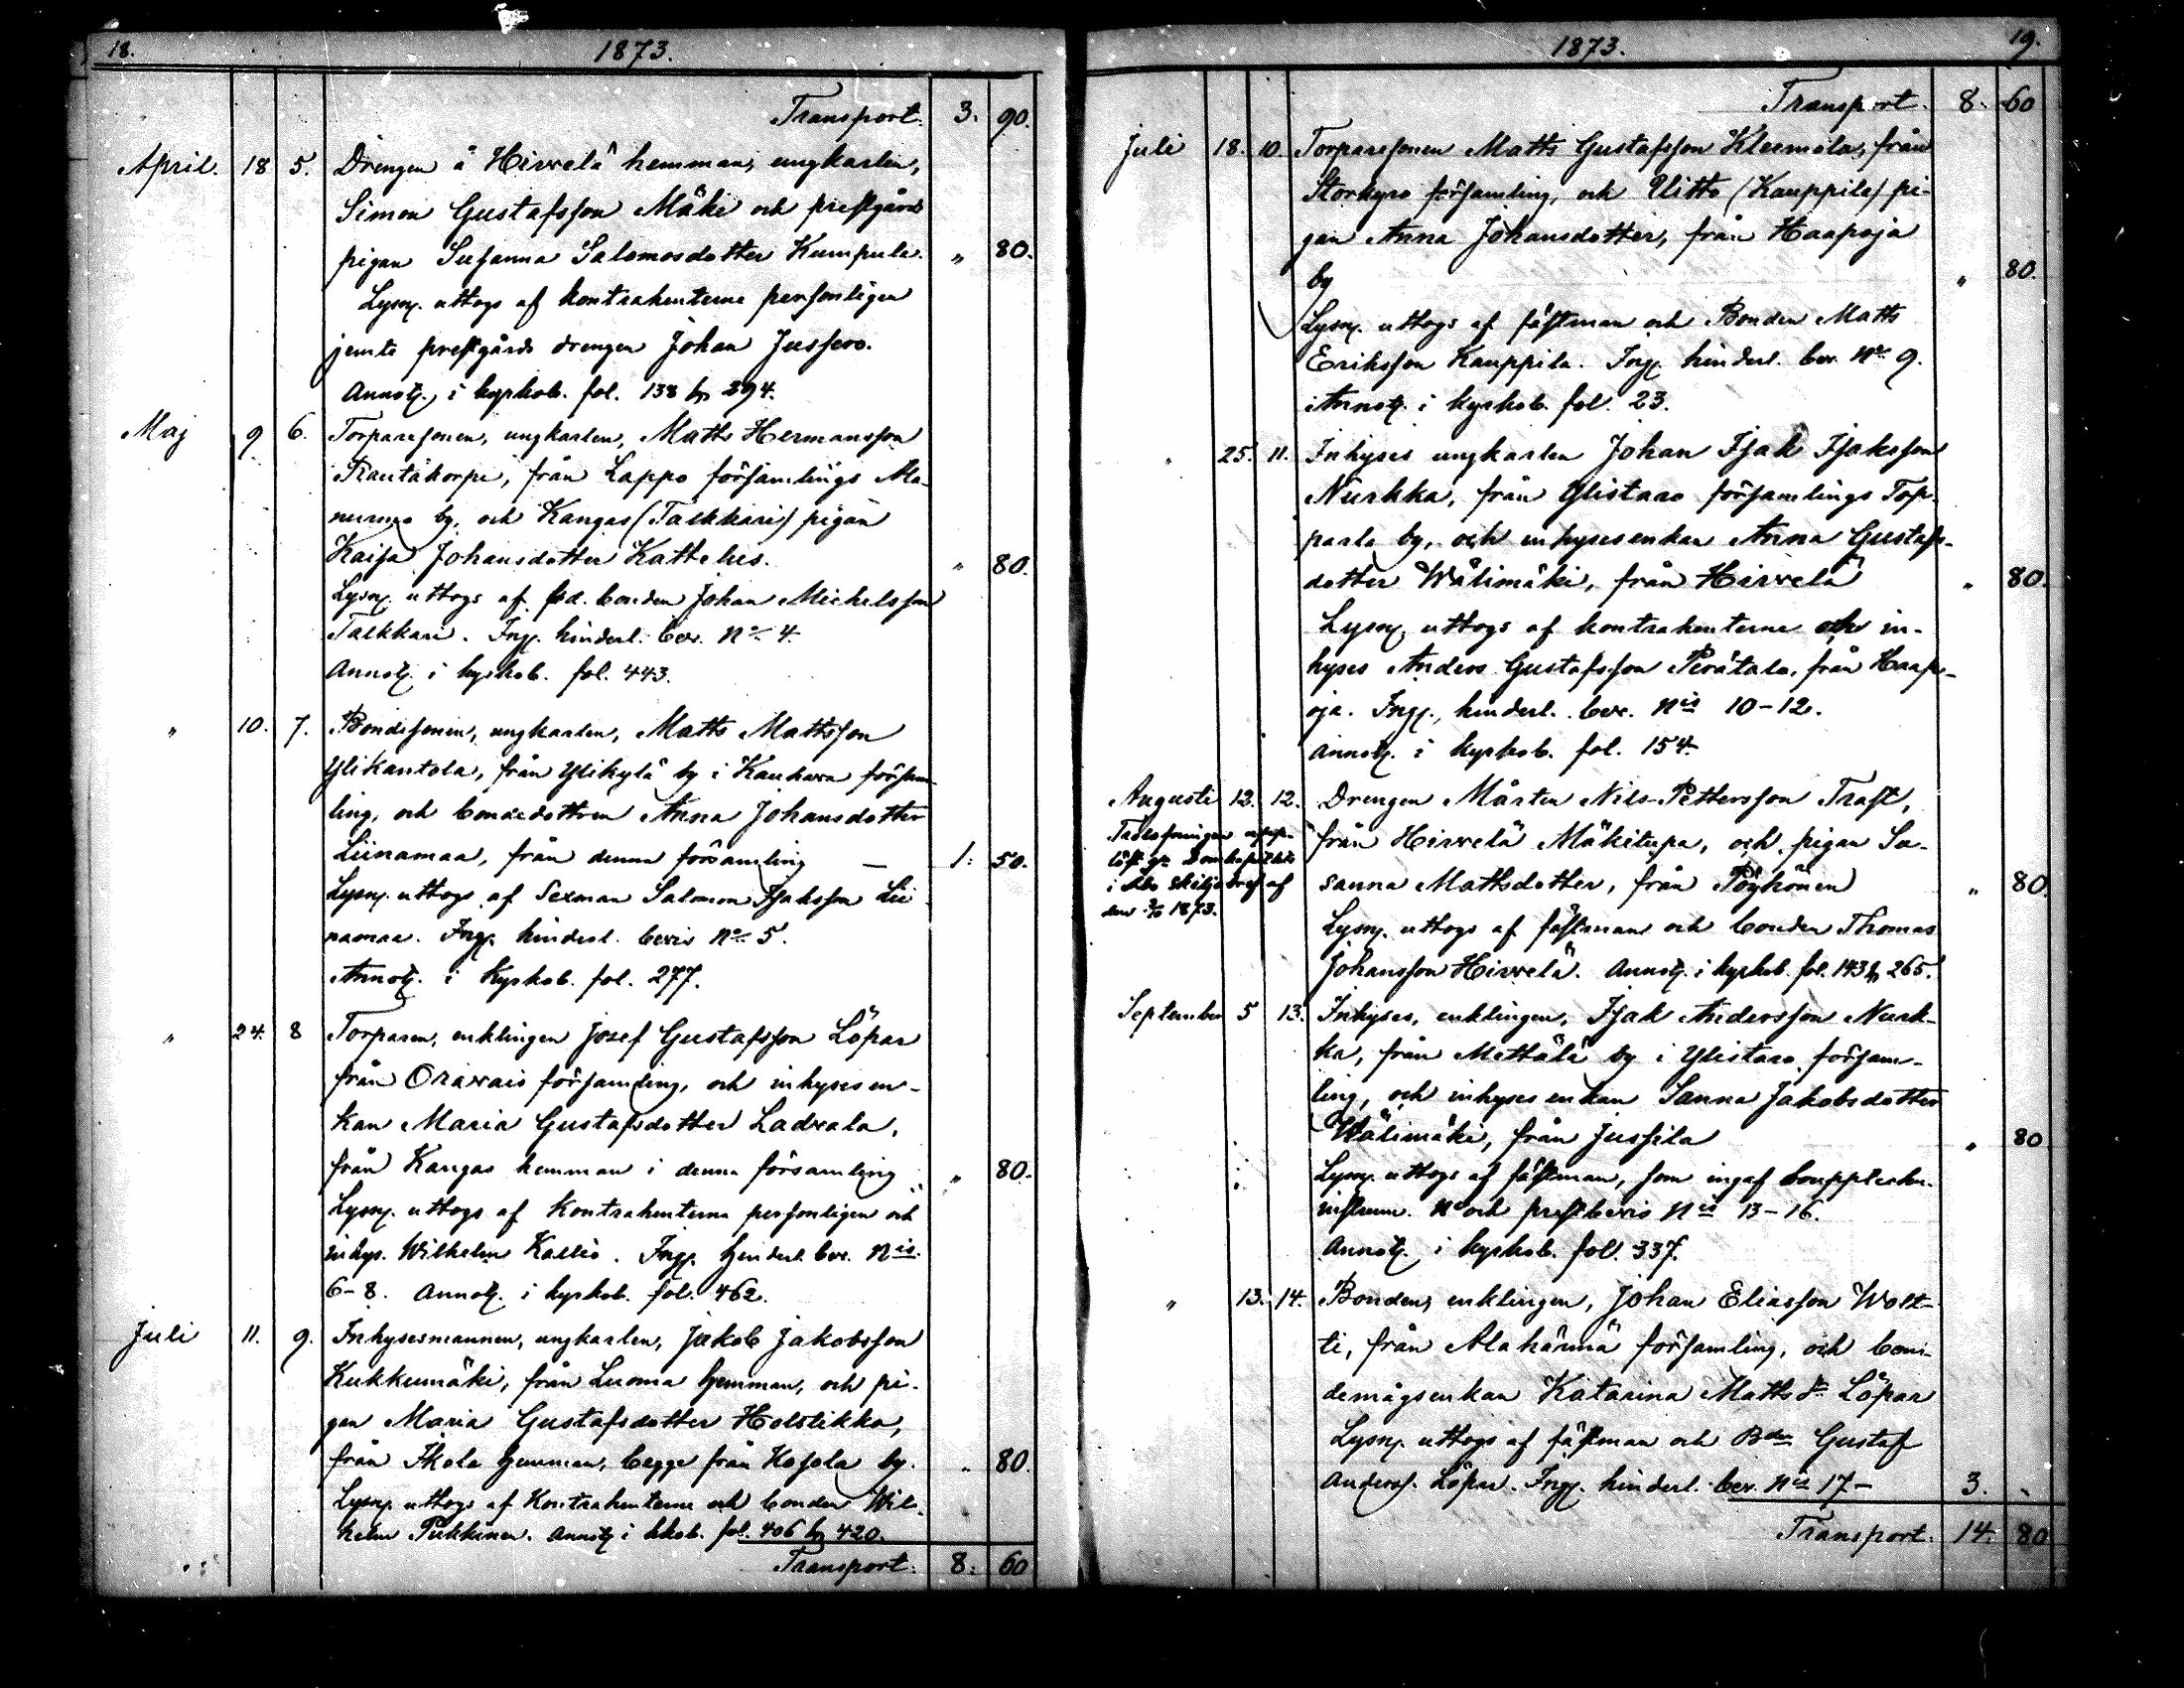 18.
1873.
Transport. 3. 90.
April. 18 5. Drengen å Hirvelä hemman, ungkarlen,
Simon Gustafsson Mäki och prestgårds
pigan Susanna Salomosdotter Kumpula. " 80.
Lysn. uttogs af kontrahenterne personligen
jemte prestgårds drengen Johan Jussero.
Annot. i kyrkob. fol. 138 h 394.
Maj 9 6. Torparesonen, ungkarlen, Matts Hermansson
Rautakorpi, från Lappo församlings Ala-
nurmo by, och Kangas (Talkkari) pigan
Kaisa Johansdotter Kattelus. " 80.
Lysn. uttogs af bonden Johan Michelsson
Talkkari. Ing. hinderl. bev. No 4.
Annot. i kyrkob. fol. 443.
" 10. 7. Bondesonen, ungkarlen, Matts Mattsson
Ylikantola, från Ylikylä by i Kauhava försam-
ling, och bondedottren Anna Johansdotter
Liinamaa, från denna församling — 1: 50.
Lysn. uttogs af Sexman Salomon Isaksson Lii
namaa. Ing. hinderl. bevis No 5.
Annot. i Kyrkob. fol. 277.
" 24. 8 Torparen, enklingen Josef Gustafsson Löpar
från Oravais församling, och inhysesen-
kan Maria Gustafsdotter Ladvala,
från Kangas hemman i denna församling " 80.
Lysn. uttogs af Kontrahenterna personligen och
inhys. Wilhelm Kallio. Ing. hinderl. bev. Nis
6-8. Annot. i kyrkob. fol. 462.
Juli 11. 9. Inhysesmannen, ungkarlen, Jakob Jakobsson
Kukkumäki, från Luoma hemman, och pi-
gan Maria Gustafsdotter Holstikka,
från Ikola hemman, begge från Kosola by. " 80.
Lysn. uttogs af Kontrahenterne och bonden Wil-
helm Pukkinen. Annot. i kkob. fol. 406 h 420.
Transport. 8: 60
1873.
19.
Transport. 8. 60
Juli 18. 10. Torparesonen Matts Gustafsson Kleemola, från
Storkyro församling, och Uitto (Kauppila) pi-
gan Anna Johansdotter, från Haapoja
by " 80.
Lysn. uttogs af fästman och Bonden Matts
Eriksson Kauppila. Ing. hinderl. bev. No 9.
Annot. i kyrkob. fol. 23.
" 25. 11. Inhyses ungkarlen Johan Isak Isaksson
Nurkka, från Ylistaro församlings Top-
parla by, och inhysesenkan Anna Gustafs-
dotter Wälimäki, från Hirvelä " 80.
Lysn. uttogs af kontrahenterne och in-
hyses Anders Gustafsson Perätalo, från Haap-
oja. Ing. hinderl. bev. Nis 10-12.
Annot. i kyrkob. fol. 154.
Augusti 12. 12. Drengen Mårten Nils-Pettersson Trast,
Trolofningen upp-
löst gn Domkapitlets
i Åbo skiljebref af
den 1873.
från Hirvelä Mäkitupa, och pigan Su-
sanna Mattsdotter, från Pöyhönen " 80.
Lysn. uttogs af fästman och bonden Thomas
Johansson Hirvelä. Annot. i kyrkob. fol. 143 h 265.
September 5 13. Inhyses, enklingen, Isak Andersson Nurk-
ka, från Mettälä by i Ylistaro försam-
ling, och inhyses enkan Sanna Jakobsdotter
Wälimäki, från Jussila " 80
Lysn. uttogs af fästman, som ingaf bouppteckn.
instrum. No och prestbevis Nis 13-16.
Annot. i kyrkob. fol. 337.
" 13. 14. Bonden, enklingen, Johan Eliasson Wolt-
ti, från Alahärmä församling, och bon-
demågsenkan Katarina Matts dr Löpar
Lysn. uttogs af fästman och Bden Gustaf
Anderss. Löpar. Ing. hinderl. bev. Nis 17- 3. "
Transport. 14. 80